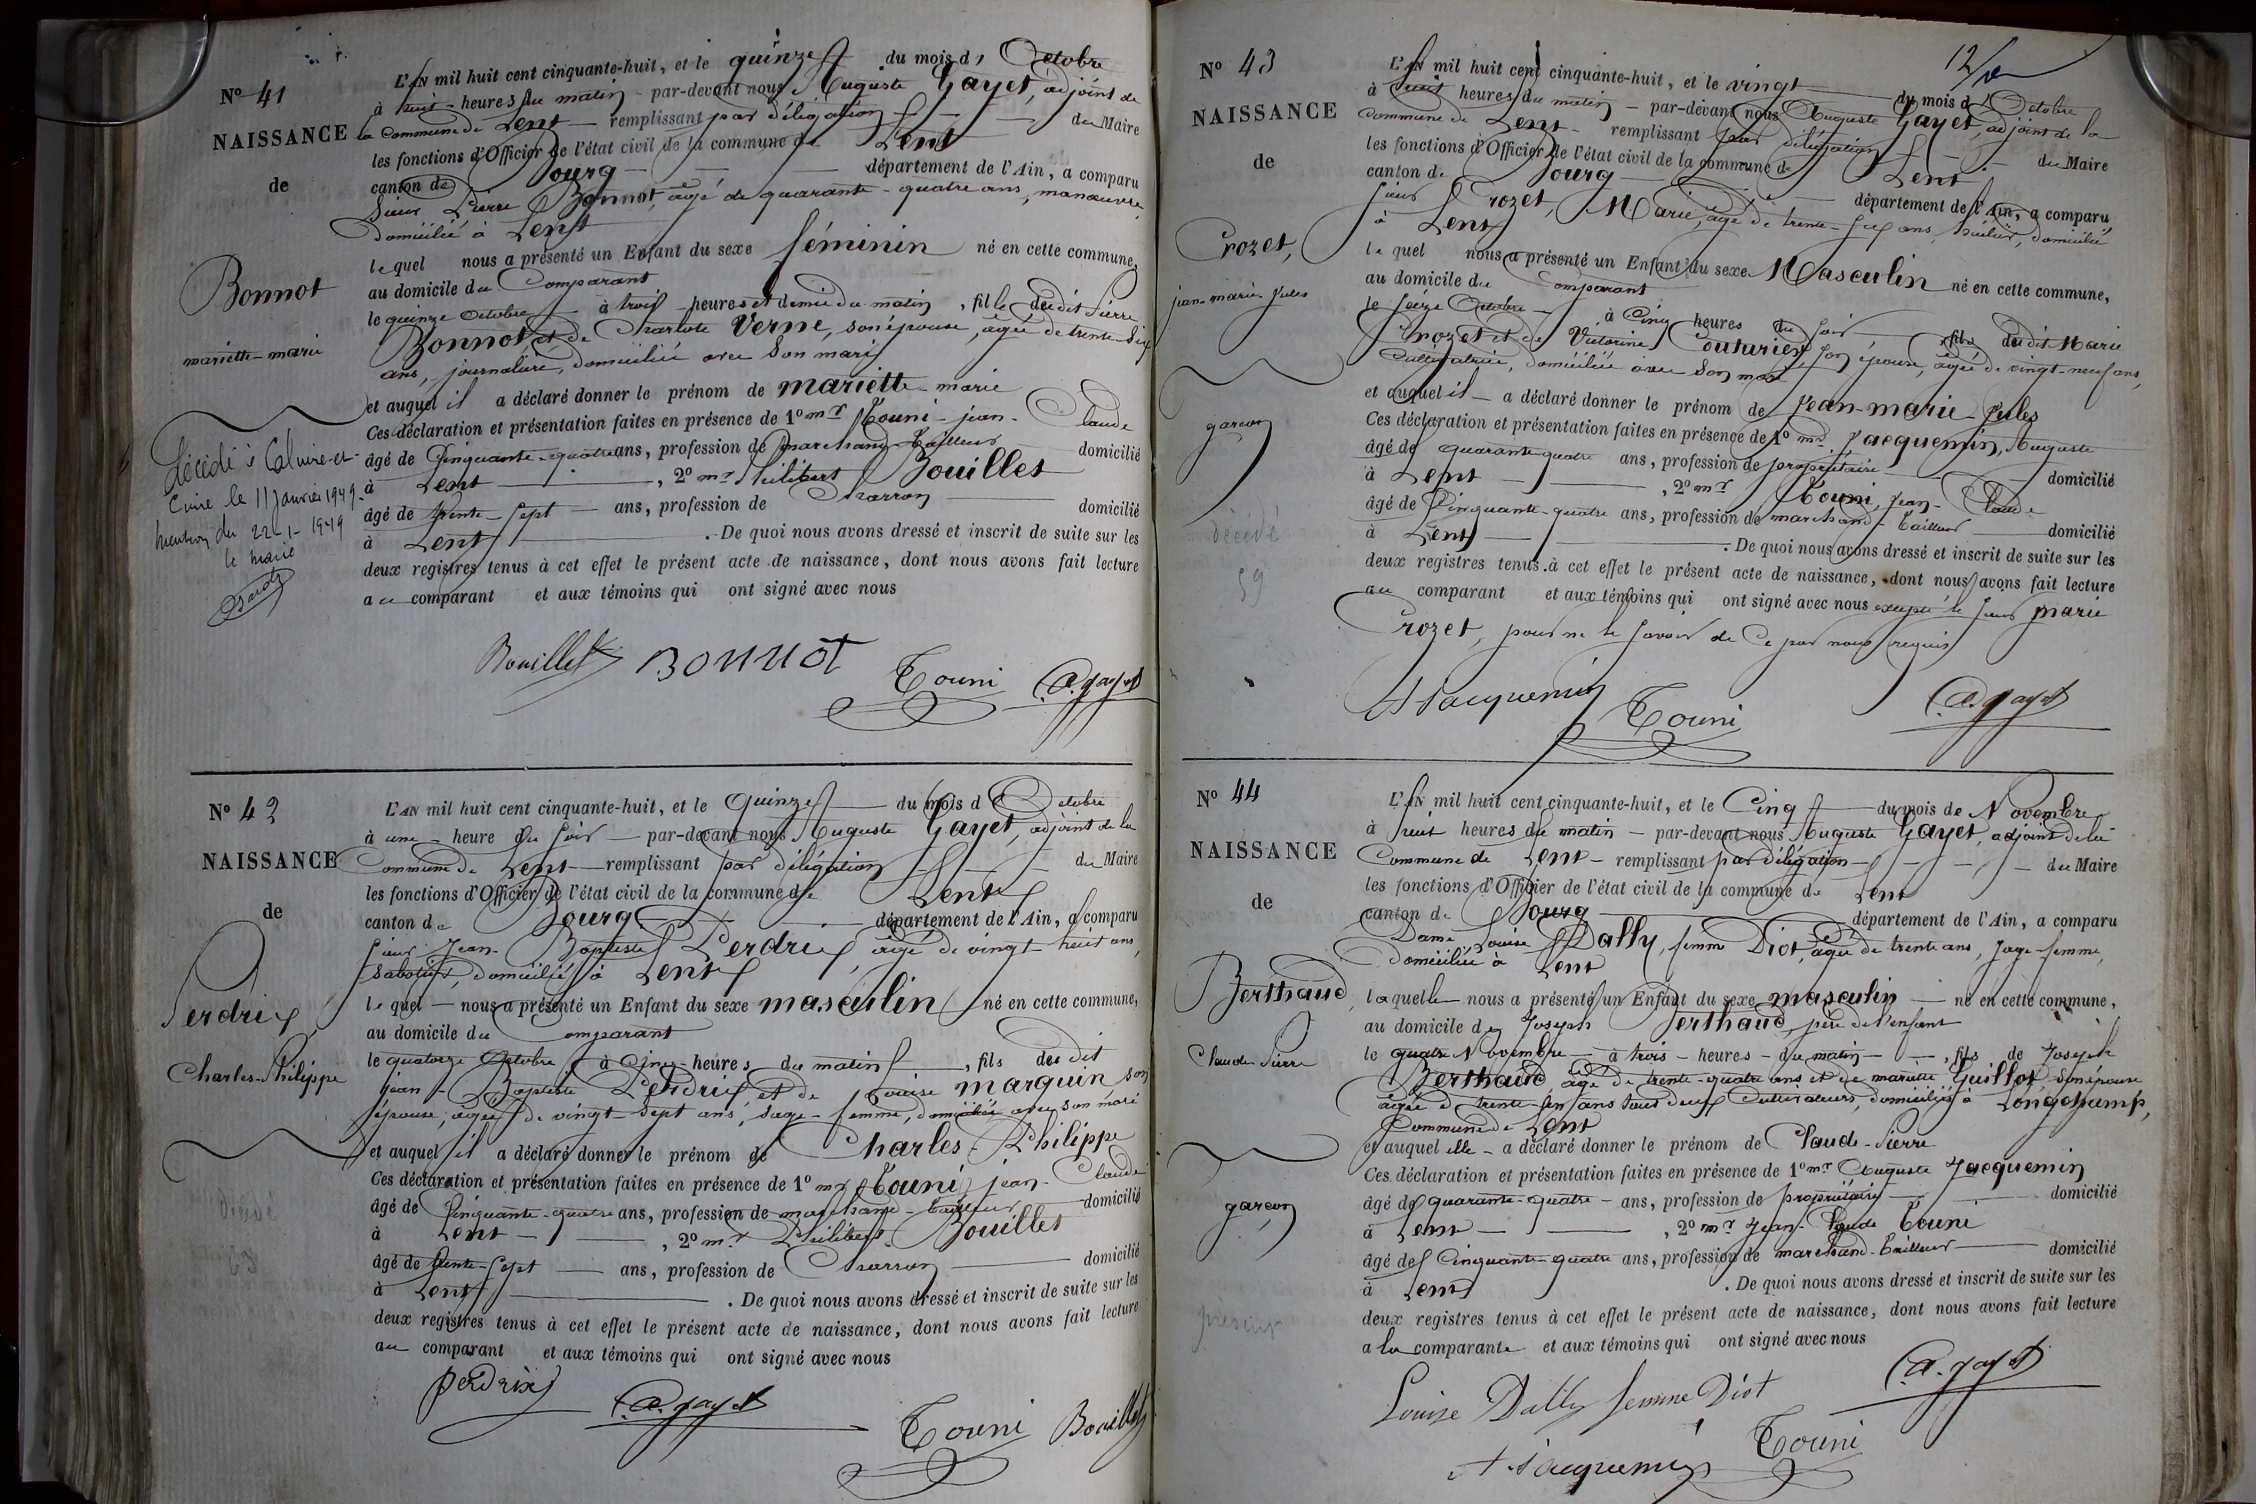 N° 41
NAISSANCE
de
Bonnot
mariette-marie
décédé à Caluire-et-
Cuire le 11 Janvier 1949.
Mention du 22-1-1949
le maire
L'AN mil huit cent cinquante-huit, et le quinze du mois d'Octobre
à huit heures du matin par-devant nous Auguste Gayet, adjoint de
la Commune de Lent remplissant par délégation du Maire
les fonctions d'Officier de l'état civil de la commune de Lent
canton de Bourg département de l'Ain, a comparu
Sieur Pierre Bonnot, âgé de quarante-quatre ans, manœuvre,
domicilié à Lent
lequel nous a présenté un Enfant du sexe féminin né en cette commune,
au domicile du Comparant
le quinze Octobre à trois heures et demie du matin, fille du dit Pierre
Bonnot et de Charlote Verne, son épouse, âgée de trente-six
ans, journalière, domiciliée avec Son mari
et auquel il a déclaré donner le prénom de mariette-marie
Ces déclaration et présentation faites en présence de 1° mr Touni-jean-Claude
âgé de Cinquante-quatre ans, profession de marchand-tailleur domicilié
à Lent, 2° mr Philibert Bouillet
âgé de trente-sept ans, profession de Charron domicilié
à Lent. De quoi nous avons dressé et inscrit de suite sur les
deux registres tenus à cet effet le présent acte de naissance, dont nous avons fait lecture
au comparant et aux témoins qui ont signé avec nous
Bouillet Bonnot Touni A. gayet
N° 42
NAISSANCE
de
Perdrix
Charles-Philippe
décédé
L'AN mil huit cent cinquante-huit, et le Quinze du mois d'Octobre
à une heure du soir par-devant nous Auguste Gayet, adjoint de la
Commune de Lent remplissant par délégation du Maire
les fonctions d'Officier de l'état civil de la commune de Lent
canton de Bourg département de l'Ain, a comparu
Sieur Jean-Baptiste Perdrix, âgé de vingt-huit ans,
sabotier, domicilié à Lent
lequel nous a présenté un Enfant du sexe masculin né en cette commune,
au domicile du Comparant
le quatorze Octobre à Cinq heures du matin, fils du dit
jean-Baptiste Perdrix et de Louise marquin son
épouse, âgée de vingt-sept ans, sage-femme, domiciliée avec son mari
et auquel il a déclaré donner le prénom de Charles-Philippe
Ces déclaration et présentation faites en présence de 1° mr Touni jean-Claude
âgé de Cinquante-quatre ans, profession de marchand-tailleur domicilié
à Lent, 2° mr Philibert Bouillet
âgé de trente-sept ans, profession de Charron domicilié
à Lent. De quoi nous avons dressé et inscrit de suite sur les
deux registres tenus à cet effet le présent acte de naissance, dont nous avons fait lecture
au comparant et aux témoins qui ont signé avec nous
perdrix A. gayet Touni Bouillet
12
N° 43
NAISSANCE
de
Crozet,
jean-marie Jules
garçon
décédé
59
L'AN mil huit cent cinquante-huit, et le vingt du mois d'Octobre
à huit heures du matin par-devant nous Auguste Gayet, adjoint de la
Commune de Lent remplissant par délégation du Maire
les fonctions d'Officier de l'état civil de la commune de Lent
canton de Bourg département de l'Ain, a comparu
Sieur Crozet, Marie, âgé de trente-six ans, domicilié
à Lent
lequel nous a présenté un Enfant du sexe Masculin né en cette commune,
au domicile du Comparant
le seize Octobre à Cinq heures du soir, fils du dit Marie
Crozet et de Victorine Couturier son épouse, âgée de vingt-neuf ans,
Cultivatrice, domiciliée avec Son mari
et auquel il a déclaré donner le prénom de Jean-marie-Jules
Ces déclaration et présentation faites en présence de 1° mr Jacquemin, Auguste
âgé de quarante-quatre ans, profession de propriétaire domicilié
à Lent, 2° mr Touni jean-Claude
âgé de Cinquante-quatre ans, profession de marchand-tailleur domicilié
à Lent. De quoi nous avons dressé et inscrit de suite sur les
deux registres tenus à cet effet le présent acte de naissance, dont nous avons fait lecture
au comparant et aux témoins qui ont signé avec nous excepté le sieur marie
Crozet, pour ne le savoir de Ce par nous requis
A Jacquemin Touni A. gayet
N° 44
NAISSANCE
de
Berthaud
Claude-Pierre
garçon
L'AN mil huit cent cinquante-huit, et le Cinq du mois de Novembre
à huit heures du matin par-devant nous Auguste Gayet, adjoint de la
Commune de Lent remplissant par délégation du Maire
les fonctions d'Officier de l'état civil de la commune de Lent
canton de Bourg département de l'Ain, a comparu
Dame Louise Dally, femme Diot, âgée de trente ans, sage-femme,
domiciliée à Lent
laquelle nous a présenté un Enfant du sexe masculin né en cette commune,
au domicile de Joseph Berthaud, père de l'enfant
le quatre Novembre à trois heures du matin, fils de Joseph
Berthaud âgé de trente-quatre ans et de mariette Guillot son épouse
âgée de trente-un ans tous deux Cultivateurs, domiciliés à Longchamp,
Commune de Lent
et auquel elle a déclaré donner le prénom de Claude-Pierre
Ces déclaration et présentation faites en présence de 1° mr Auguste Jacquemin
âgé de quarante-quatre ans, profession de propriétaire domicilié
à Lent, 2° mr Jean-Claude Touni
âgé de Cinquante-quatre ans, profession de marchand-tailleur domicilié
à Lent. De quoi nous avons dressé et inscrit de suite sur les
deux registres tenus à cet effet le présent acte de naissance, dont nous avons fait lecture
a la comparante et aux témoins qui ont signé avec nous
Louise Dally femme Diot A. gayet
A Jacquemin Touni